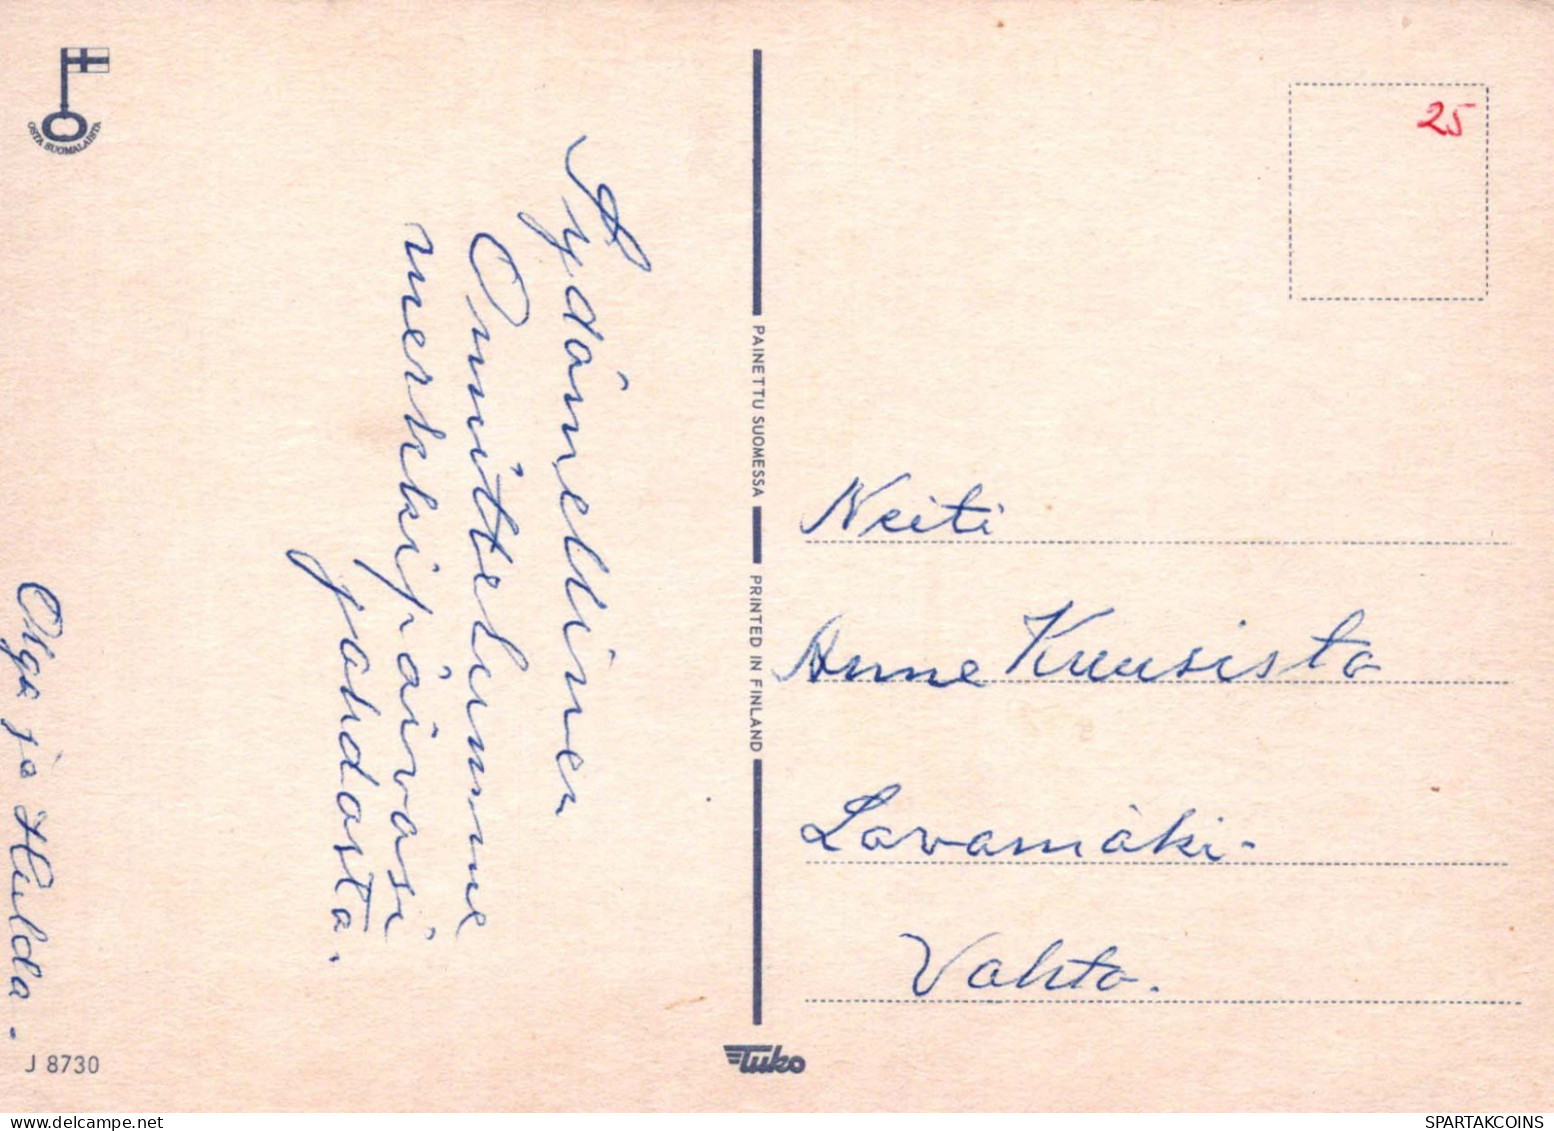 OSTA SUOMALAISTA
Sydämellinen
Onnittelumme
merkkipäiväsi
johdosta.
Olga ja Hulda.
J 8730
PAINETTU SUOMESSA PRINTED IN FINLAND
Tuko
25
Neiti
Anne Kuusisto
Lavamäki-
Vahto.
SPARTAKCOINS